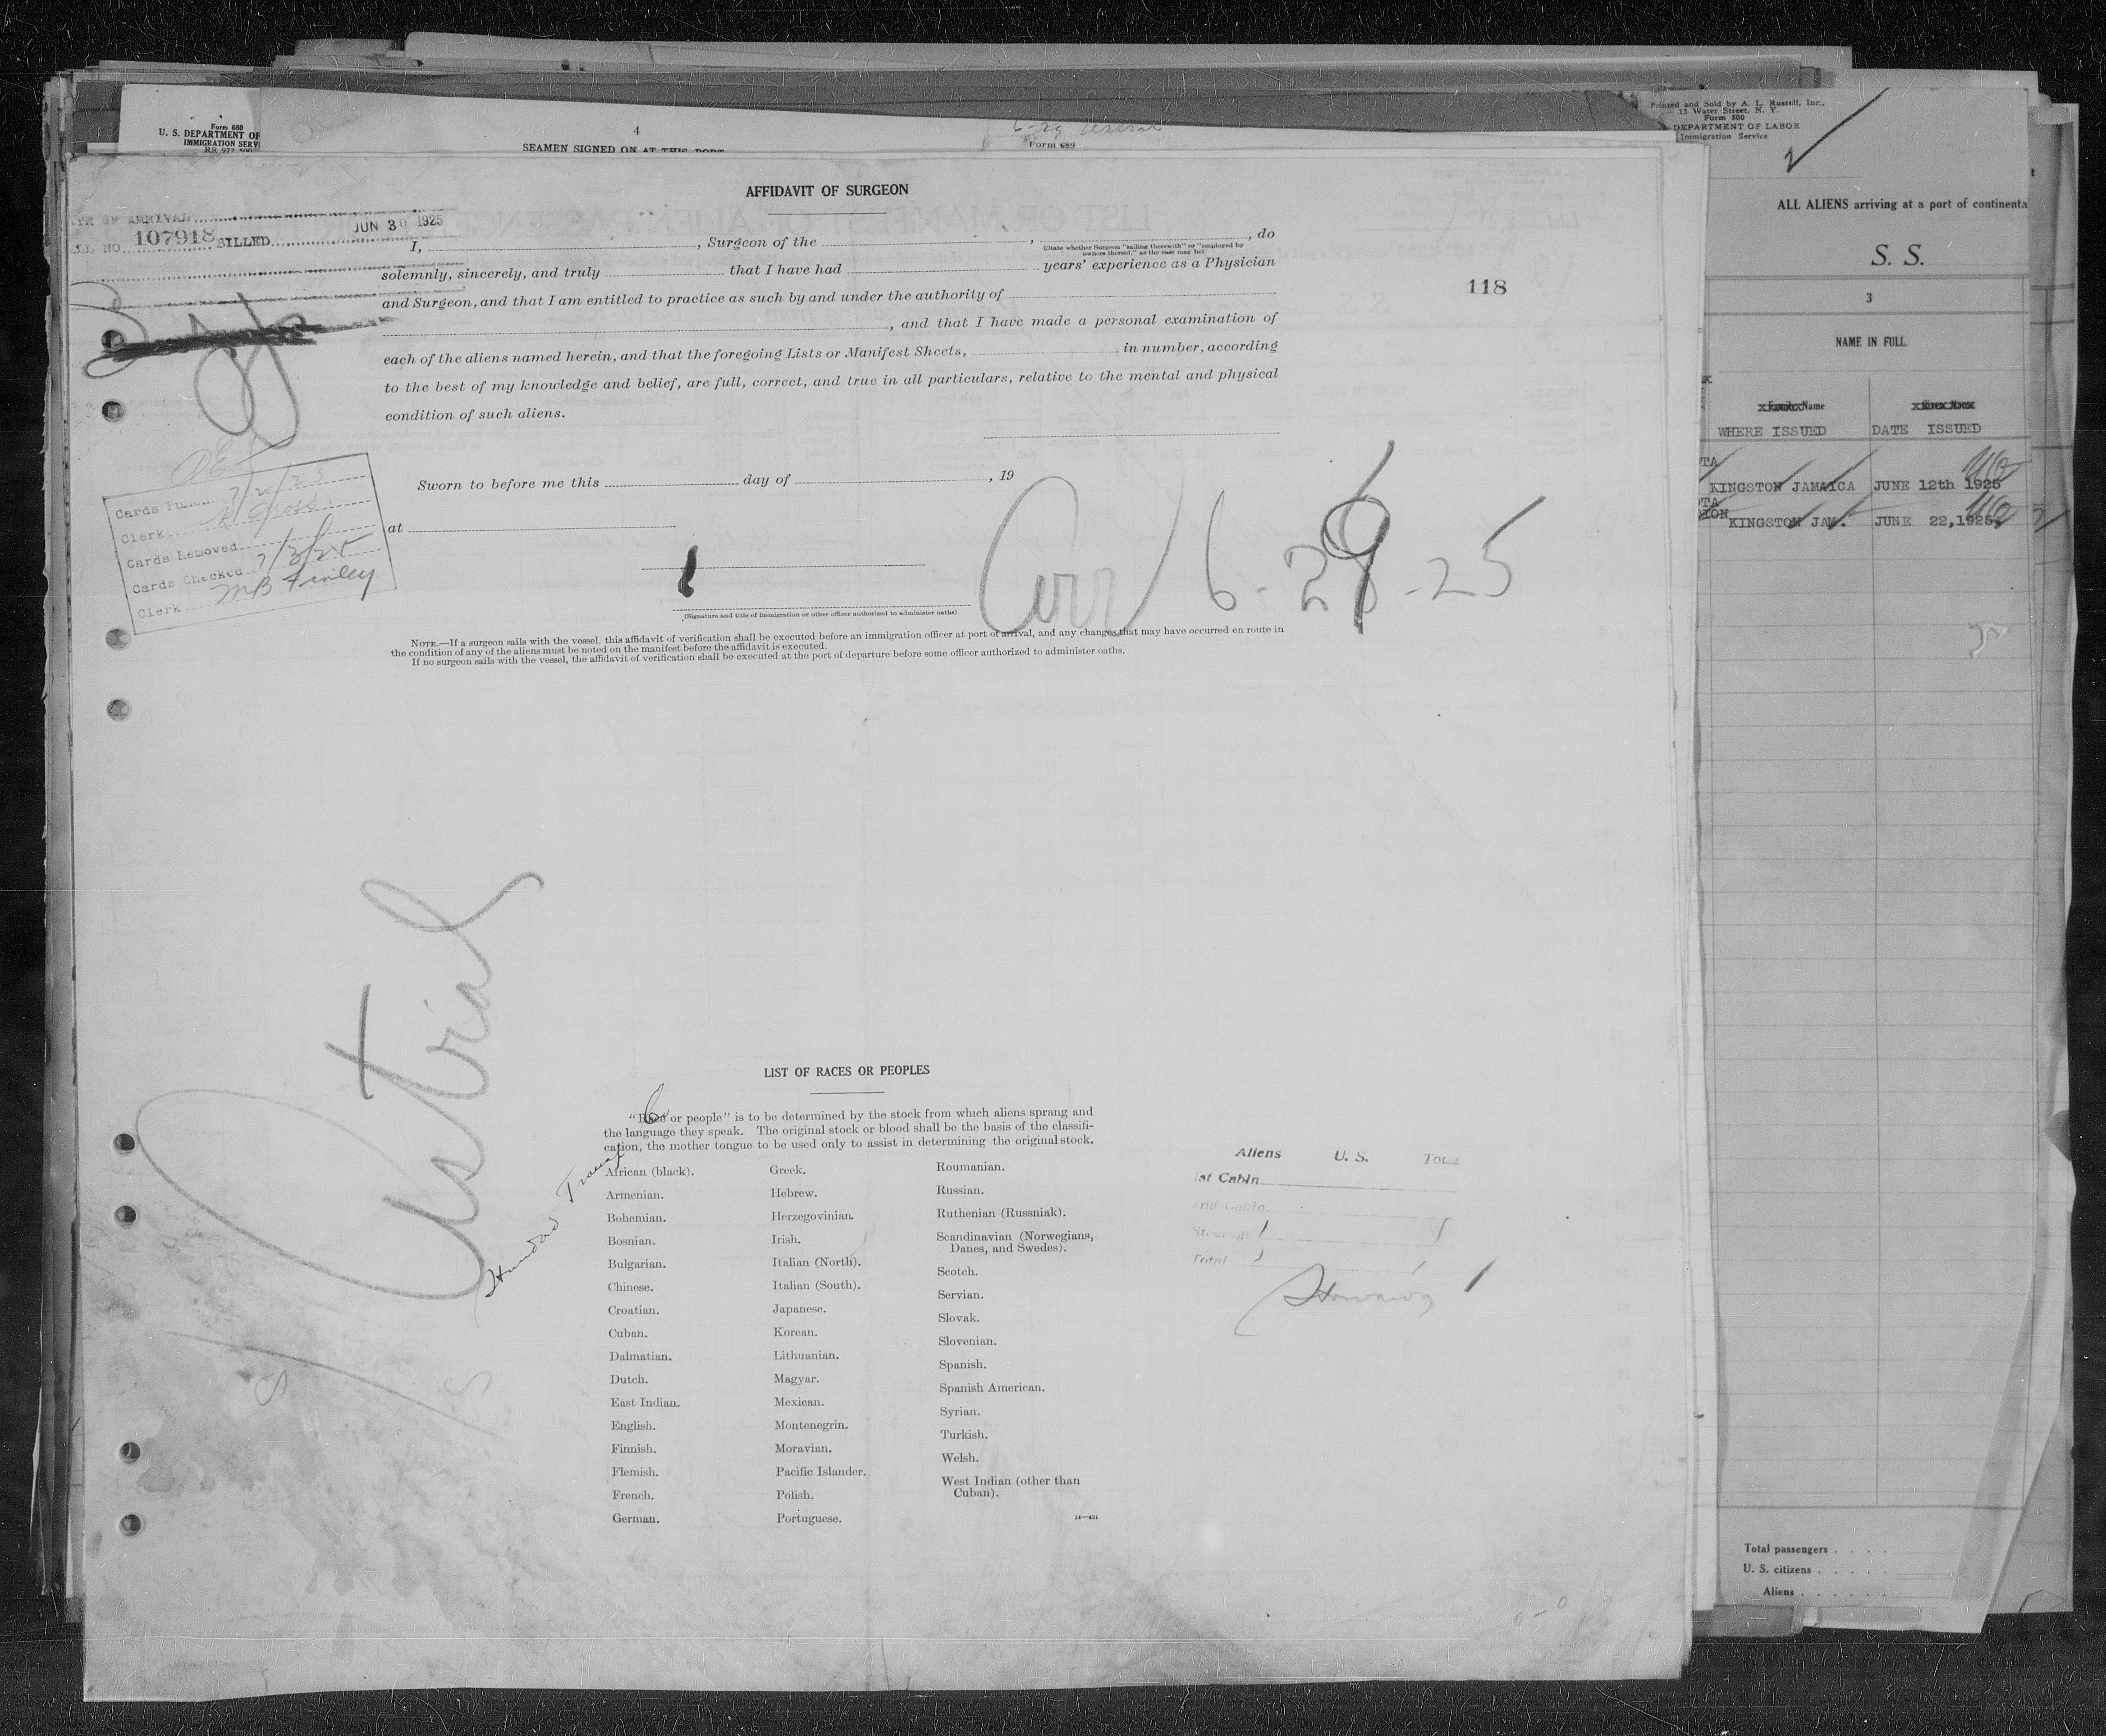 Form 680
U. S. DEPARTMENT OF
IMMIGRATION SERV
4
SEAMEN SIGNED ON AT THIS PORT
Form 689
Printed and Sold by A. L. Russell, Inc.,
15 Water Street, N. Y.
Form 500
DEPARTMENT OF LABOR
Immigration Service
ALL ALIENS arriving at a port of continenta
S. S.
3
NAME IN FULL.
Family Name
Given Name
WHERE ISSUED DATE ISSUED
TA
KINGSTON JAMAICA JUNE 12th 1925
TA
ION
KINGSTON JAM. JUNE 22,1925
Total passengers
U. S. citizens
Aliens
AFFIDAVIT OF SURGEON
TE OF ARRIVAL
LL NO. 107918 BILLED JUN 30 1925
I, , Surgeon of the , , do
(State whether Surgeon "sailing therewith" or "employed by
owners thereof," as the case may be)
solemnly, sincerely, and truly that I have had years' experience as a Physician
and Surgeon, and that I am entitled to practice as such by and under the authority of
118
, and that I have made a personal examination of
each of the aliens named herein, and that the foregoing Lists or Manifest Sheets, in number, according
to the best of my knowledge and belief, are full, correct, and true in all particulars, relative to the mental and physical
condition of such aliens.
Sworn to before me this day of , 19
at
Cards 7/2/25
Clerk
Cards Removed
Cards Checked 7/3/25
Clerk MB Finley
Arr 6-29-25
(Signature and title of immigration or other officer authorized to administer oaths)
NOTE.—If a surgeon sails with the vessel, this affidavit of verification shall be executed before an immigration officer at port of arrival, and any changes that may have occurred en route in
the condition of any of the aliens must be noted on the manifest before the affidavit is executed.
If no surgeon sails with the vessel, the affidavit of verification shall be executed at the port of departure before some officer authorized to administer oaths.
Astral
LIST OF RACES OR PEOPLES
"Race or people" is to be determined by the stock from which aliens sprang and
the language they speak. The original stock or blood shall be the basis of the classifi-
cation, the mother tongue to be used only to assist in determining the original stock.
African (black).
Armenian.
Bohemian.
Bosnian.
Bulgarian.
Chinese.
Croatian.
Cuban.
Dalmatian.
Dutch.
East Indian.
English.
Finnish.
Flemish.
French.
German.
Greek.
Hebrew.
Herzegovinian.
Irish.
Italian (North).
Italian (South).
Japanese.
Korean.
Lithuanian.
Magyar.
Mexican.
Montenegrin.
Moravian.
Pacific Islander.
Polish.
Portuguese.
Roumanian.
Russian.
Ruthenian (Russniak).
Scandinavian (Norwegians,
Danes, and Swedes).
Scotch.
Servian.
Slovak.
Slovenian.
Spanish.
Spanish American.
Syrian.
Turkish.
Welsh.
West Indian (other than
Cuban).
14—431
Aliens U. S. Total
1st Cabin
2nd Cabin
Steerage 1 1
Total 1 1
0-0